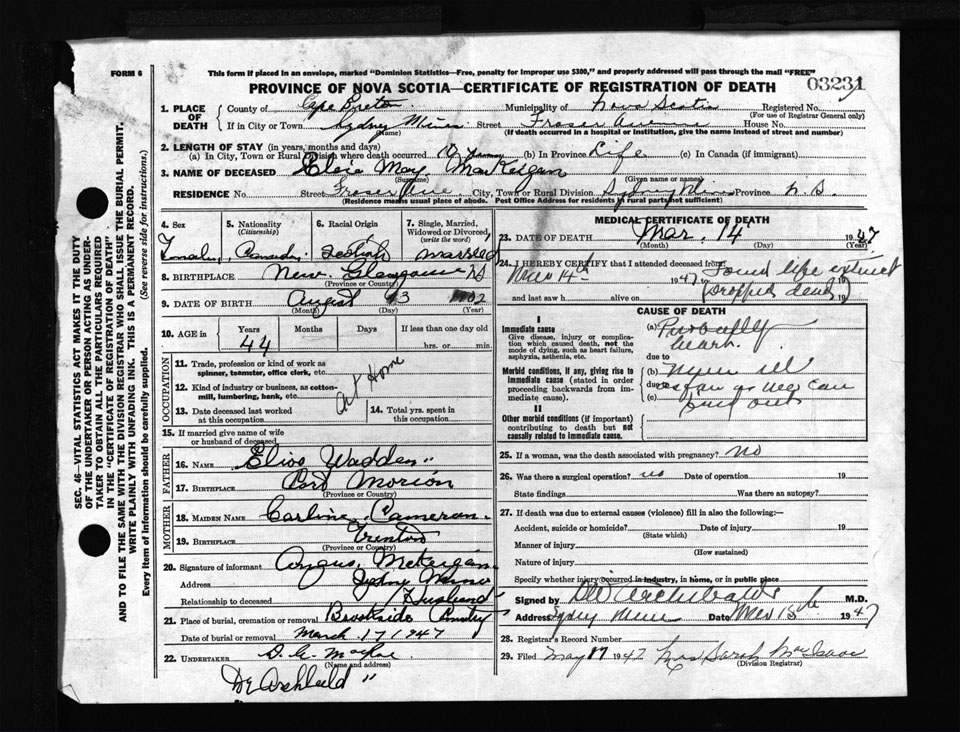 FORM 6
This form if placed in an envelope, marked "Dominion Statistics—Free, penalty for improper use $300," and properly addressed will pass through the mail "FREE"
PROVINCE OF NOVA SCOTIA—CERTIFICATE OF REGISTRATION OF DEATH
03231
1. PLACE OF DEATH
County of Cape Breton Municipality of Nova Scotia Registered No.
(For use of Registrar General only)
If in City or Town Sydney Mines Street Fraser Avenue House No.
(Name) (If death occurred in a hospital or institution, give the name instead of street and number)
2. LENGTH OF STAY (in years, months and days)
(a) In City, Town or Rural Division where death occurred 10 (b) In Province Life (c) In Canada (if immigrant)
3. NAME OF DECEASED May
(Surname) (Given name or names)
RESIDENCE No Street Fraser Ave. City, Town or Rural Division Sydney Mines Province N.S.
(Residence means usual place of abode. Post Office Address for residents in rural parts not sufficient)
4. Sex
5. Nationality (Citizenship)
6. Racial Origin
7. Single, Married, Widowed or Divorced, (write the word)
Married
8. BIRTHPLACE New Glasgow NS
(Province or Country)
9. DATE OF BIRTH
(Month) (Day) (Year)
10. AGE in
Years Months Days If less than one day old
44 hrs. or min.
OCCUPATION
11. Trade, profession or kind of work as spinner, teamster, office clerk, etc.
12. Kind of industry or business, as cotton-mill, lumbering, bank, etc.
At Home
13. Date deceased last worked at this occupation
14. Total yrs. spent in this occupation
15. If married give name of wife or husband of deceased
FATHER
16. NAME Wadden "
17. BIRTHPLACE Port Morion
(Province or Country)
MOTHER
18. MAIDEN NAME Cameron
19. BIRTHPLACE Trenton
(Province or Country)
20. Signature of informant Angus
Address Sydney Mines
Relationship to deceased Husband
21. Place of burial, cremation or removal Brookside
Date of burial or removal March 17 1947
22. UNDERTAKER
(Name and address)
MEDICAL CERTIFICATE OF DEATH
23. DATE OF DEATH Mar. 14 1947
(Month) (Day) (Year)
24. I HEREBY CERTIFY that I attended deceased from: Found life extinct
14th 1947 (dropped dead) 19
and last saw h alive on 19
CAUSE OF DEATH
I
Immediate cause
Give disease, injury or complication which caused death, not the mode of dying, such as heart failure, asphyxia, asthenia, etc.
(a)
heart.
due to
Morbid conditions, if any, giving rise to immediate cause (stated in order proceeding backwards from immediate cause).
(b) ill
due to as far as we can
(c) find out
II
Other morbid conditions (if important) contributing to death but not causally related to immediate cause.
25. If a woman, was the death associated with pregnancy? no
26. Was there a surgical operation? no Date of operation 19
State findings Was there an autopsy?
27. If death was due to external causes (violence) fill in also the following:—
Accident, suicide or homicide? Date of injury 19
(State which)
Manner of injury
(How sustained)
Nature of injury
Specify whether injury occurred in industry, in home, or in public place
Signed by Archibald M.D.
Address Sydney Mines Date 1947
28. Registrar's Record Number
29. Filed May 17 1947 Mrs Sarah MacIsaac
(Division Registrar)
Dr Archibald "
SEC. 46—VITAL STATISTICS ACT MAKES IT THE DUTY OF THE UNDERTAKER OR PERSON ACTING AS UNDERTAKER TO OBTAIN ALL THE PARTICULARS REQUIRED IN THE "CERTIFICATE OF REGISTRATION OF DEATH" AND TO FILE THE SAME WITH THE DIVISION REGISTRAR WHO SHALL ISSUE THE BURIAL PERMIT.
WRITE PLAINLY WITH UNFADING INK. THIS IS A PERMANENT RECORD.
Every item of information should be carefully supplied. (See reverse side for instructions.)